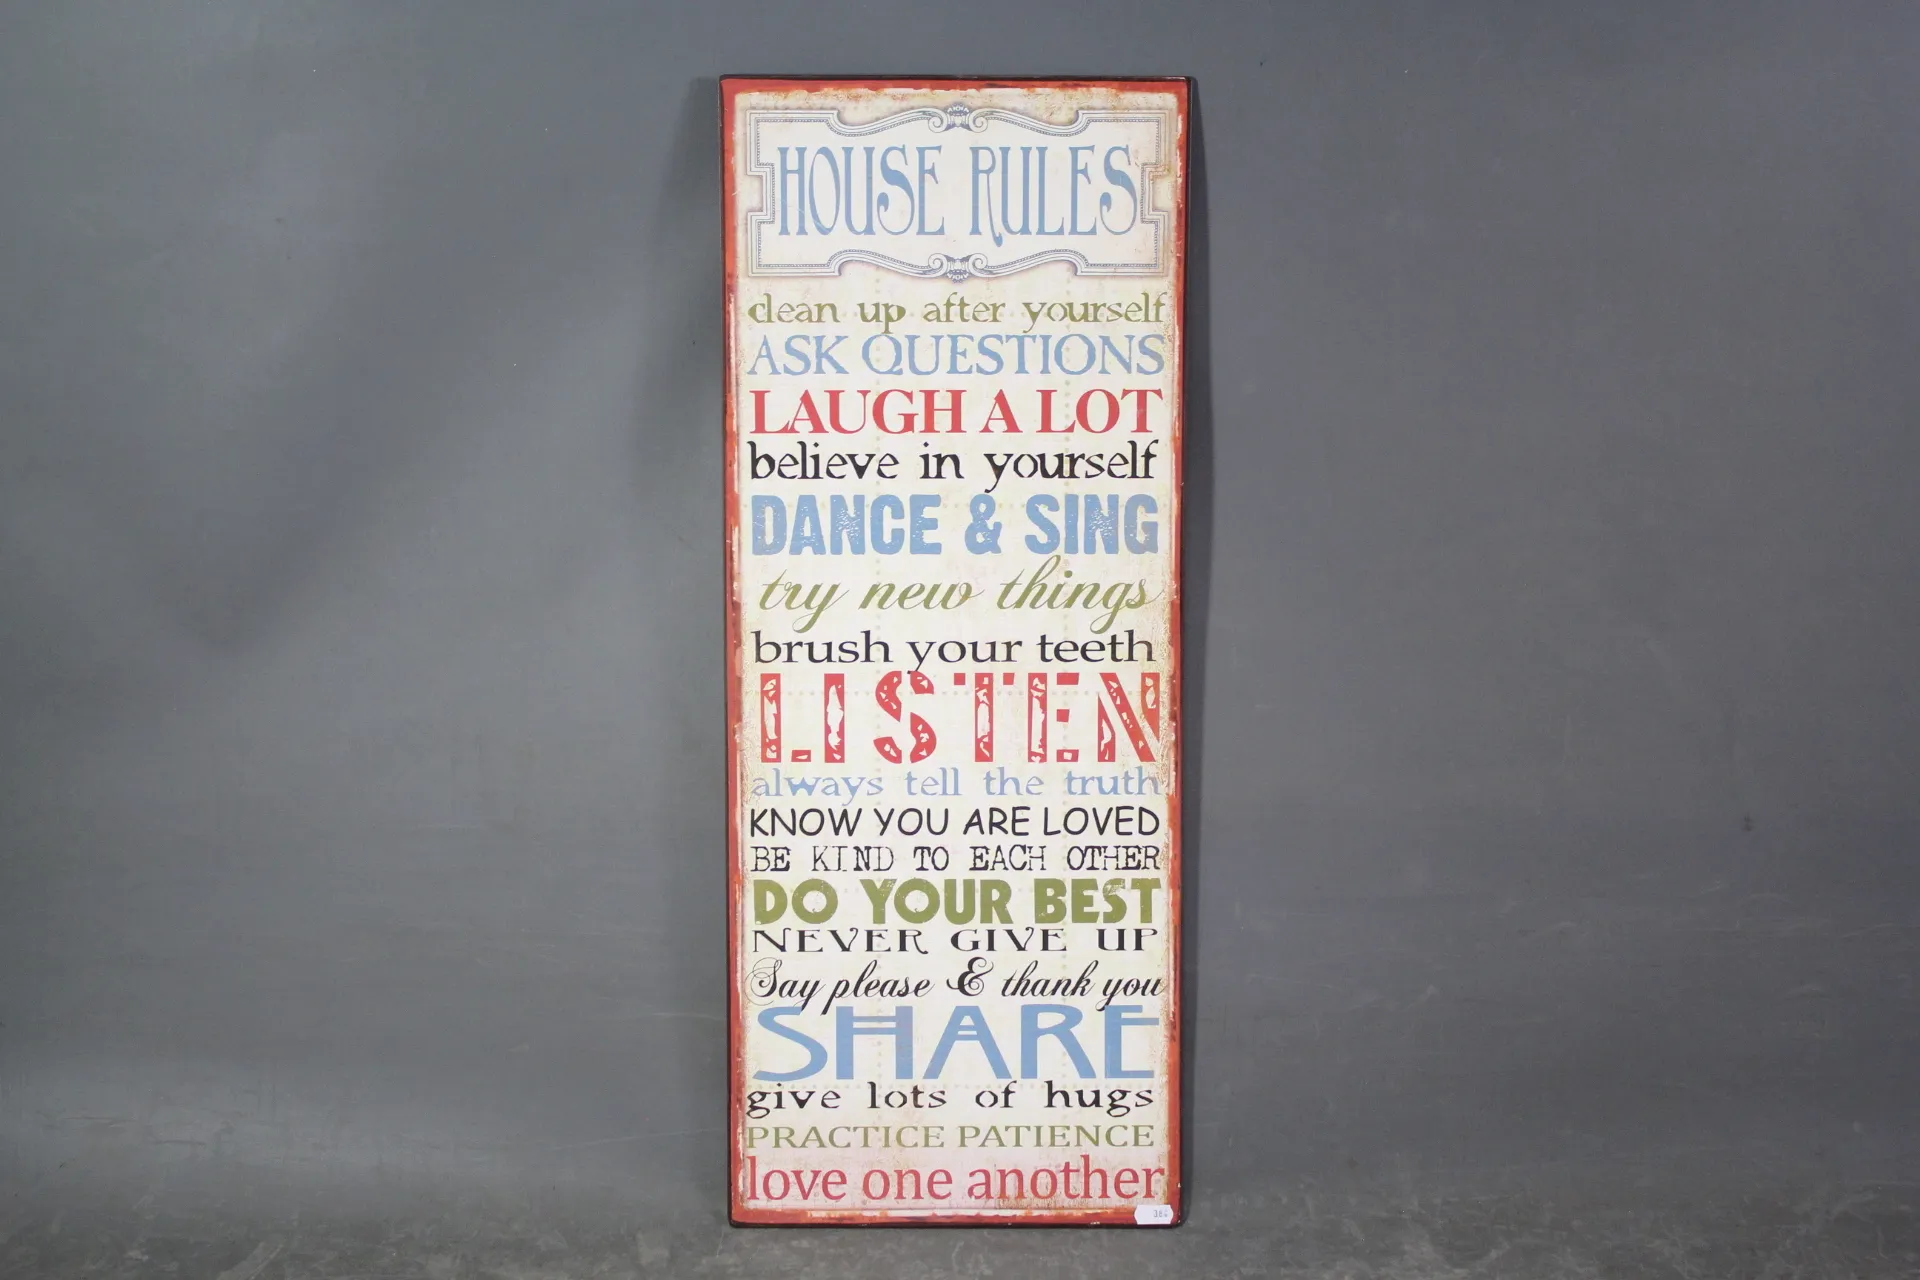 HOUSE RULES
clean up after yourself
ASK QUESTIONS
LAUGH A LOT
believe in yourself
DANCE & SING
try new things
brush your teeth
LISTEN
always tell the truth
KNOW YOU ARE LOVED
BE KIND TO EACH OTHER
DO YOUR BEST
NEVER GIVE UP
Say please & thank you
SHARE
give lots of hugs
PRACTICE PATIENCE
love one another